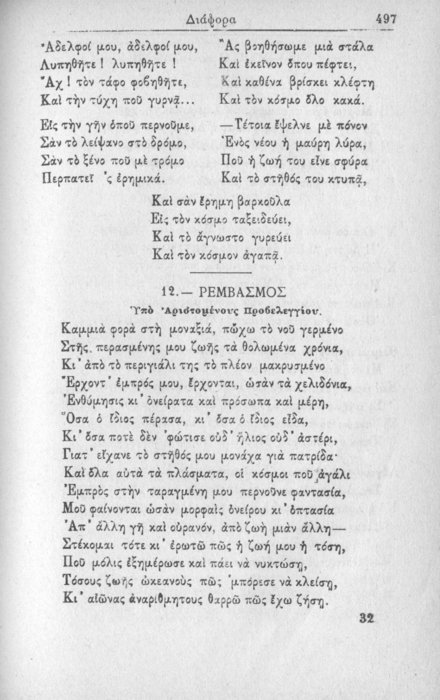 Διάφορα 497
Ἀδελφοί μου, ἀδελφοί μου,
Λυπηθῆτε ! λυπηθῆτε !
Ἄχ ! τὸν τάφο φοβηθῆτε,
Καὶ τὴν τύχη ποῦ γυρνᾷ...
Εἰς τὴν γῆν ὁποῦ περνοῦμε,
Σὰν τὸ λείψανο στὸ δρόμο,
Σὰν τὸ ξένο ποῦ μὲ τρόμο
Περπατεῖ 'ς ἐρημικά.
Ἂς βοηθήσωμε μιὰ στάλα
Καὶ ἐκεῖνον ὅπου πέφτει,
Καὶ καθένα βρίσκει κλέφτη
Καὶ τὸν κόσμο ὅλο κακά.
—Τέτοια ἔψελνε μὲ πόνον
Ἑνὸς νέου ἡ μαύρη λύρα,
Ποῦ ἡ ζωή του εἶνε σφύρα
Καὶ τὸ στῆθός του κτυπᾷ,
Καὶ σὰν ἔρημη βαρκοῦλα
Εἰς τὸν κόσμο ταξειδεύει,
Καὶ τὸ ἄγνωστο γυρεύει
Καὶ τὸν κόσμον ἀγαπᾷ.
12.— ΡΕΜΒΑΣΜΟΣ
Ὑπὸ Ἀριστομένους Προβελεγγίου.
Καμμιὰ φορὰ στὴ μοναξιά, πὤχω τὸ νοῦ γερμένο
Στῆς περασμένης μου ζωῆς τὰ θολωμένα χρόνια,
Κι' ἀπὸ τὸ περιγιάλι της τὸ πλέον μακρυσμένο
Ἔρχοντ' ἐμπρός μου, ἔρχονται, ὡσὰν τὰ χελιδόνια,
Ἐνθύμησις κι' ὀνείρατα καὶ πρόσωπα καὶ μέρη,
Ὅσα ὁ ἴδιος πέρασα, κι' ὅσα ὁ ἴδιος εἶδα,
Κι' ὅσα ποτὲ δὲν 'φώτισε οὐδ' ἥλιος οὐδ' ἀστέρι,
Γιατ' εἴχανε τὸ στῆθός μου μονάχα γιὰ πατρίδα·
Καὶ ὅλα αὐτὰ τὰ πλάσματα, οἱ κόσμοι ποῦ ἀγάλι
Ἐμπρὸς στὴν ταραγμένη μου περνοῦνε φαντασία,
Μοῦ φαίνονται ὡσὰν μορφαὶς ὀνείρου κι' ὀπτασία
Ἀπ' ἄλλη γῆ καὶ οὐρανόν, ἀπὸ ζωὴ μιὰν ἄλλη—
Στέκομαι τότε κι' ἐρωτῶ πῶς ἡ ζωή μου ἡ τόση,
Ποῦ μόλις ἐξημέρωσε καὶ πάει νὰ νυκτώσῃ,
Τόσους ζωῆς ὠκεανοὺς πῶς 'μπόρεσε νὰ κλείσῃ,
Κι' αἰῶνας ἀναρίθμητους θαρρῶ πῶς ἔχω ζήσῃ.
32